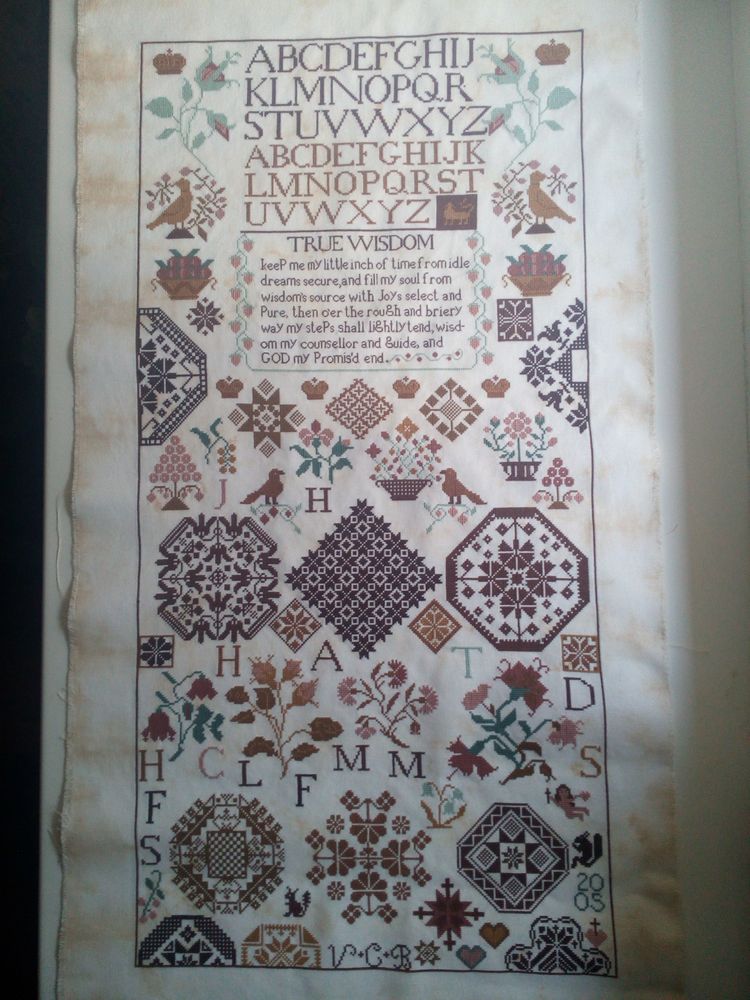 ABCDEFGHIJ
KLMNOPQR
STUVWXYZ
ABCDEFGHIJK
LMNOPQRST
UVWXYZ
TRUE WISDOM
keeP me my little inch of time from idle
dreams secure, and fill my soul from
wisdom's source with Joys select and
Pure, then o'er the rough and briery
way my stePs shall lightly tend, wisd-
om my counsellor and guide, and
GOD my Promis'd end.
J H
H A T
D
H C L M M S
F F
S
20
05
V+C+B